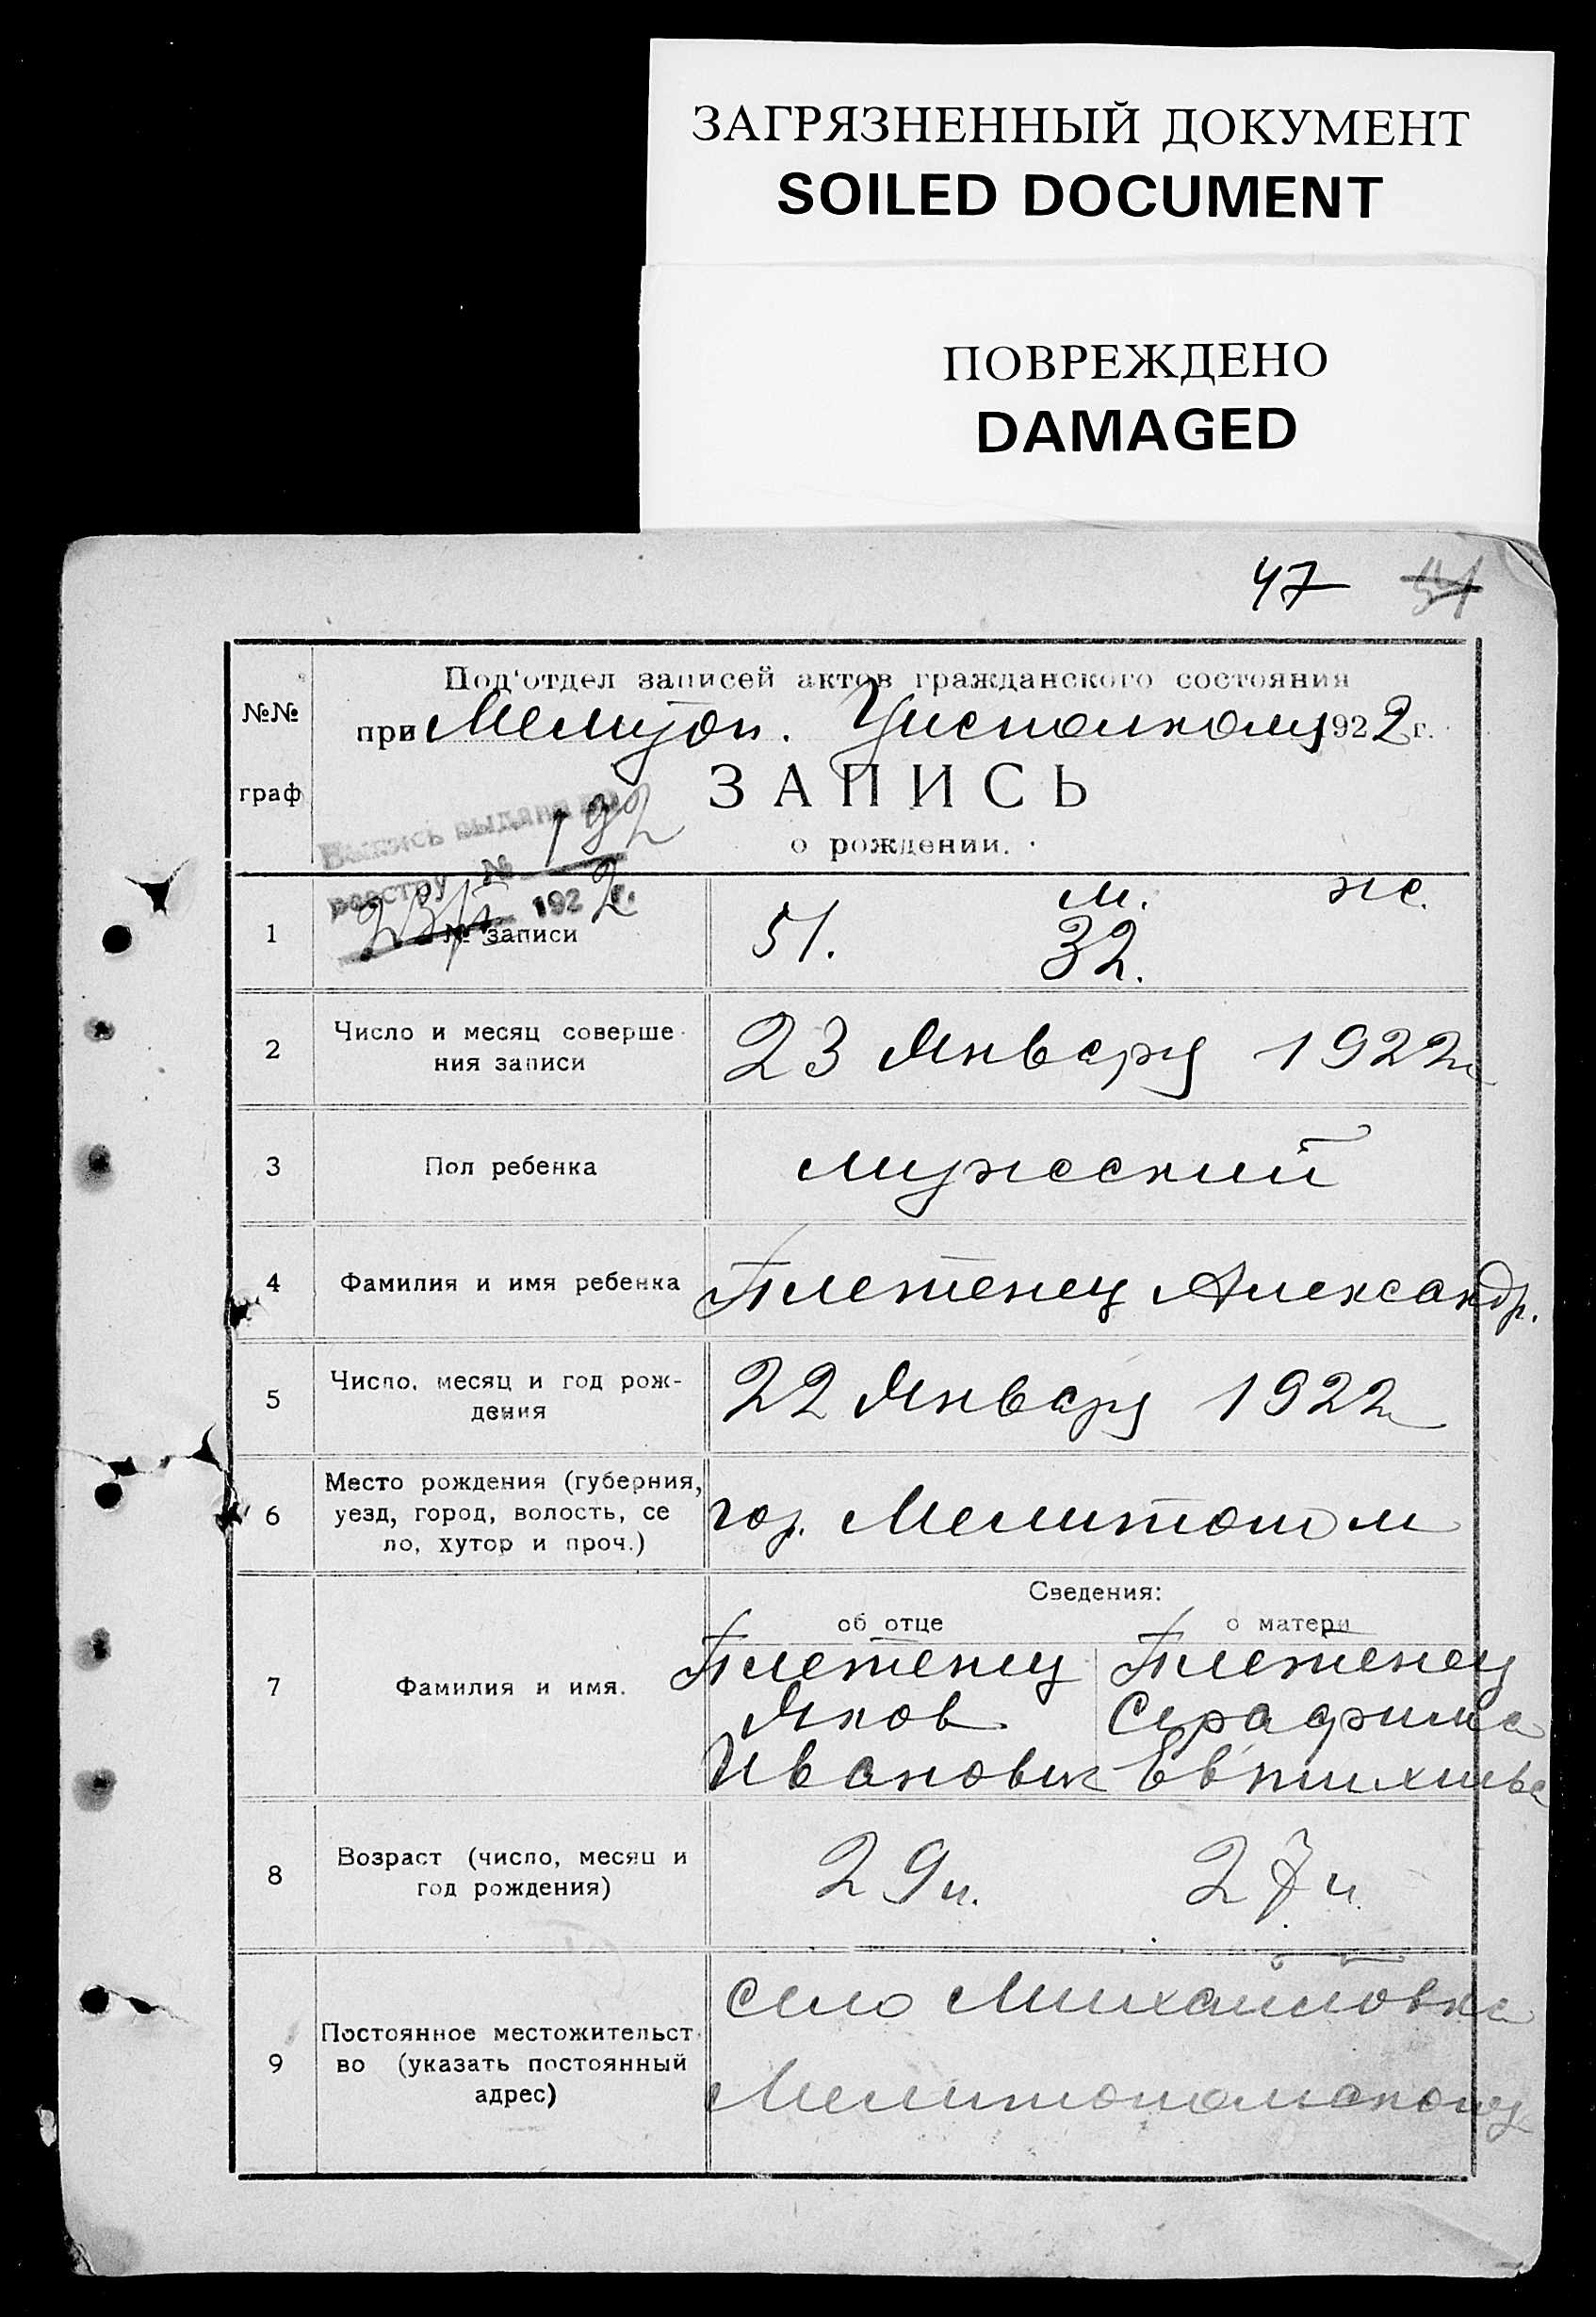 ЗАГРЯЗНЕННЫЙ ДОКУМЕНТ
SOILED DOCUMENT
ПОВРЕЖДЕНО
DAMAGED
47 51
№№ граф
Под'отдел записей актов гражданского состояния
при Мелитоп. Уисполкому 1922 г.
ЗАПИСЬ
о рождении.
Выпись выдана по
реестру № 192
23/I 1922 г.
м. ж.
1 № записи 51. 32.
2 Число и месяц соверше-
ния записи 23 Января 1922 г.
3 Пол ребенка мужеский
4 Фамилия и имя ребенка Плетенец Александр.
5 Число, месяц и год рож-
дения 22 Января 1922
6 Место рождения (губерния,
уезд, город, волость, се
ло, хутор и проч.) гор. Мелитополь
Сведения:
об отце о матери
7 Фамилия и имя. Плетенец Плетенец
Яков Серафима
Иванович Евтихиева
8 Возраст (число, месяц и
год рождения) 29 л. 27 л.
9 Постоянное местожительст
во (указать постоянный
адрес) село Михайловка
Мелитопольского у